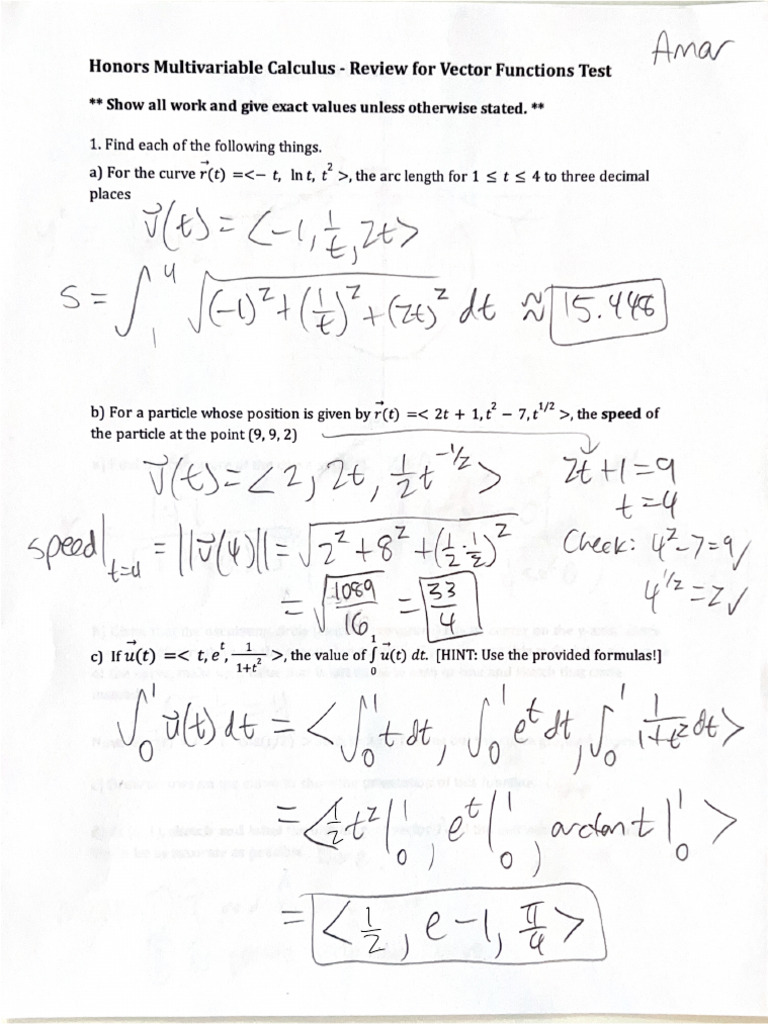 Amar
Honors Multivariable Calculus - Review for Vector Functions Test
** Show all work and give exact values unless otherwise stated. **
1. Find each of the following things.
a) For the curve r⃗(t) =<− t, ln t, t² >, the arc length for 1 ≤ t ≤ 4 to three decimal
places
v⃗(t) = <-1, 1/t, 2t>
S = ∫₁⁴ √((-1)² + (1/t)² + (2t)²) dt ≈ 15.448
b) For a particle whose position is given by r⃗(t) =< 2t + 1, t² − 7, t^(1/2) >, the speed of
the particle at the point (9, 9, 2)
v⃗(t) = <2, 2t, ½t^(-1/2)>
2t+1=9
t=4
speed|t=4 = ||v⃗(4)|| = √(2² + 8² + (½·½)²)
Check: 4²-7=9✓
= √(1089/16) = 33/4
4^(1/2)=2✓
c) If u⃗(t) =< t, e^t, 1/(1+t²) >, the value of ∫₀¹ u⃗(t) dt. [HINT: Use the provided formulas!]
∫₀¹ u⃗(t) dt = <∫₀¹ t dt, ∫₀¹ e^t dt, ∫₀¹ 1/(1+t²) dt>
= <½t²|₀¹, e^t|₀¹, arctan t|₀¹>
= <½, e-1, π/4>